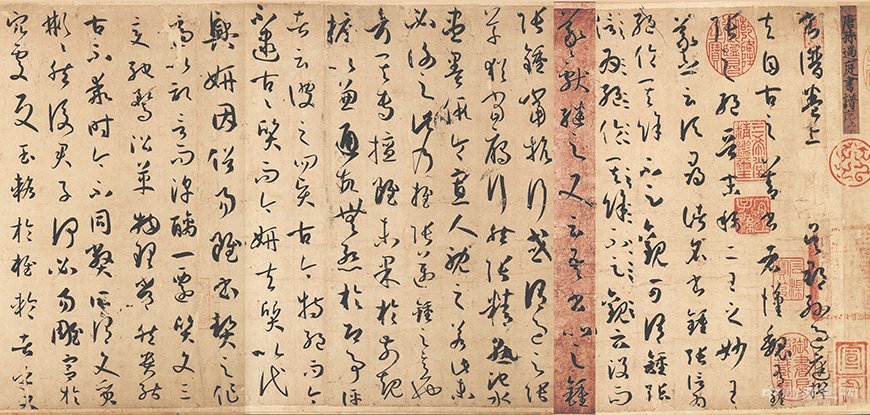 唐孫過庭書譜序
書譜卷上 吳郡孫過庭撰
夫自古之善書者漢魏有鍾
張之絕晉末稱二王之妙王
羲之云頃尋諸名書鍾張信為
絕倫其餘不足觀可謂鍾張
絕倫其餘不足觀云沒而
羲獻繼之又云吾書比之鍾
張鍾當抗行或謂過之張
草猶當鴈行然張精熟池水
盡墨假令寡人耽之若此未
必謝之此乃推張邁鍾之意也
考其專擅雖未果於前規
摭以兼通故無慚於即事評
者云彼之四賢古今特絕而今
不逮古古質而今妍夫質以代
興妍因俗易雖書契之作
適以記言而淳醨一遷質文三
變馳騖沿革物理常然貴能
古不乖時今不同弊所謂文質
彬彬然後君子何必易雕宮於
穴處反玉輅於椎輪者乎又